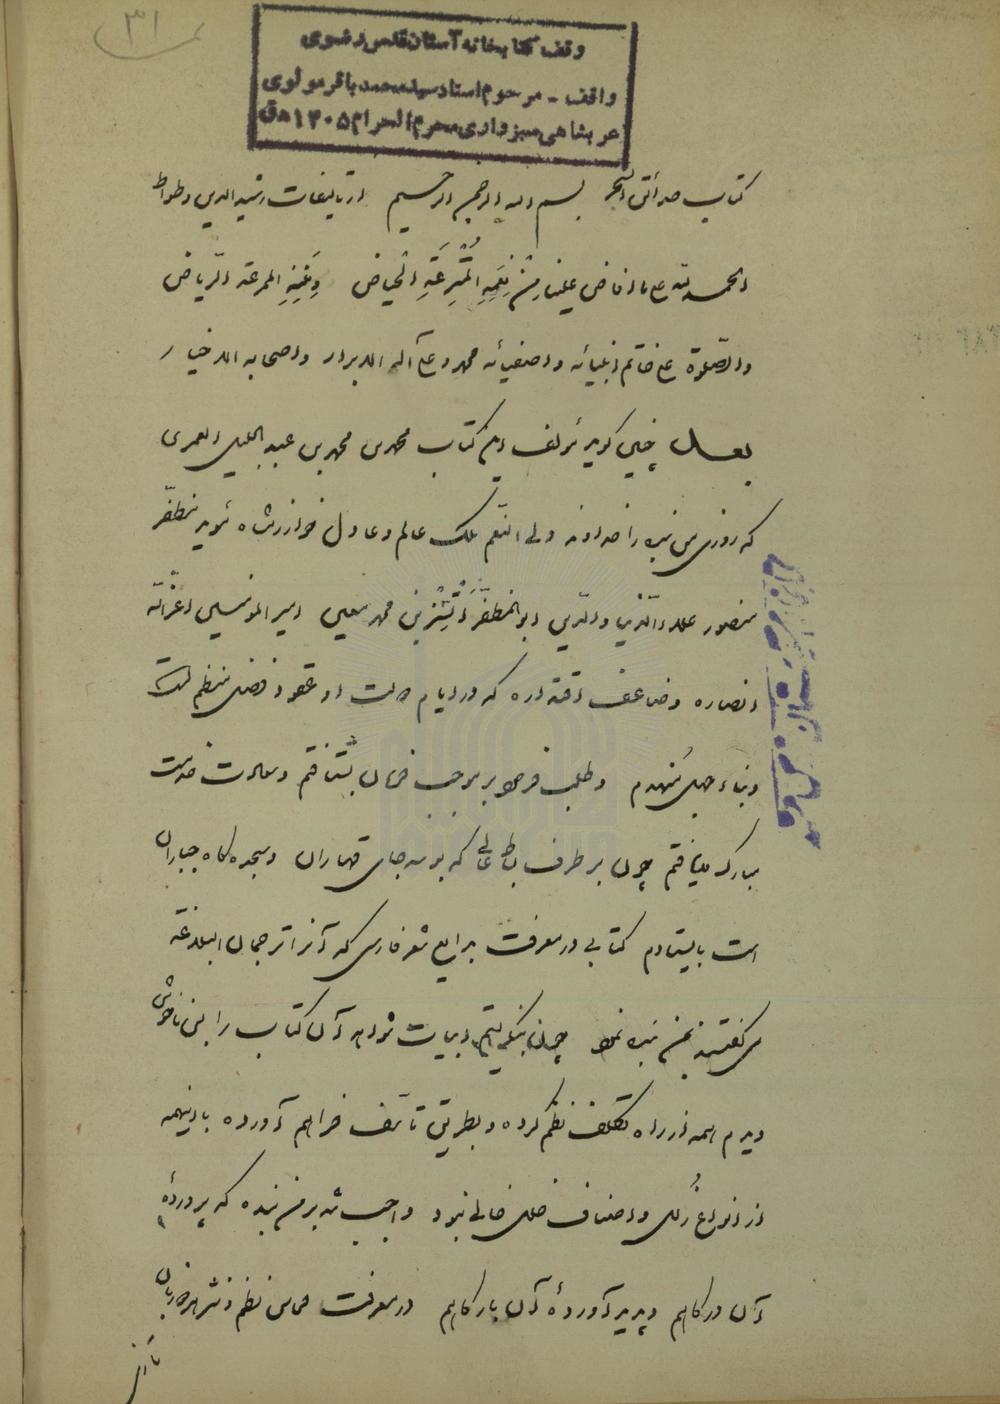 ۳۱
وقف کتابخانه آستان قدس رضوی
واقف - مرحوم استاد سید محمد باقر مولوی
عربشاهی سبزواری محرم الحرام ۱۴۰۵ ه ق
کتاب حدائق السحر بسم الله الرحمن الرحیم از تالیفات رشید الدین وطواط
الحمد لله علی ما افاض علینا من نِعَمِهِ المُتْرَعَةِ الحیاض وَ مِنَنِهِ الممرعة الریاض
والصلوة علی خاتم انبیائه و اصفیائه محمد و علی آله الابرار و اصحابه الاخیار
چنین گوید مؤلف این کتاب محمد بن محمد بن عبد الجلیل العمری
که روزی من بنده را خداوند ولی النعم ملک عالم و عادل خوارزمشاه مؤید مظفر
منصور علاء الدنیا و الدین ابو المظفر اَتْسِز بن محمد معین امیر المؤمنین اعز الله
انصاره و ضاعف اقتداره که در ایام دولت او عقود فضل منتظم است
و بناء جهل منهدم و طلب فرمود بر موجب فرمان بشتافتم و سعادت خدمت
مبارک بیافتم چون بر طرف بساط عالی که بوسه جای قهاران و سجده گاه جباران
است بایستادم کتابی در معرفت بدایع شعر فارسی که آنرا ترجمان البلاغة
می گفتند بمن بنده نمود چون بنگریستم ابیات شواهد آن کتاب را بس ناخوش
دیدم همه از راه تکلف نظم کرده و بطریق تأسف فراهم آورده با اینهمه
از انواع زلل و اصناف خلل خالی نبود واجب شد بر من بنده که پروردهٔ
آن درگاهم و پدید آوردهٔ آن بارگاهم در معرفت محاسن نظم و نثر هر دو زبان